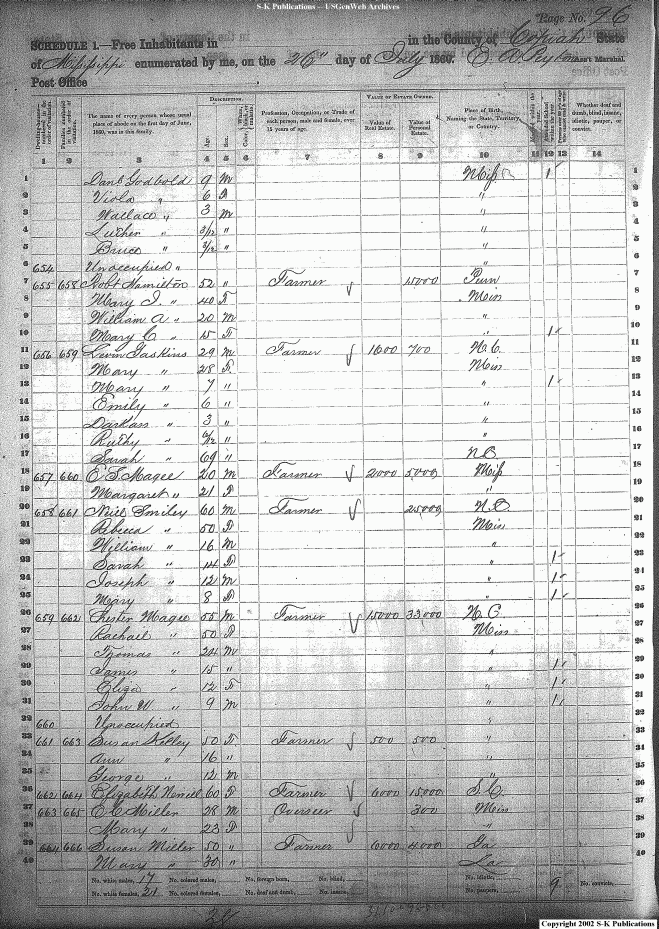 S-K Publications -- USGenWeb Archives
Page No. 96
SCHEDULE 1.—Free Inhabitants in in the County of Copiah State
of Mississippi enumerated by me, on the 26" day of July 1860. Ass't Marshal.
Post Office
DESCRIPTION. VALUE OF ESTATE OWNED.
The name of every person whose usual place of abode on the first day of June, 1860, was in this family.
Age. Sex. Profession, Occupation, or Trade of each person, male and female, over 15 years of age. Value of Real Estate. Value of Personal Estate. Place of Birth, Naming the State, Territory, or Country. Whether deaf and dumb, blind, insane, idiotic, pauper, or convict.
1 2 3 4 5 6 7 8 9 10 11 12 13 14
1 Danl Godbold 9 M Miss 1 1
2 Viola " 6 F " 2
3 Wallace " 3 M " 3
4 Luther " 3/12 " " 4
5 Bruce " 3/12 " " 5
6 654 Unoccupied " " 6
7 655 658 Robt Hamilton 52 " Farmer 15000 Penn 7
8 Mary J. " 40 F Miss 8
9 William A " 20 M " 9
10 Mary C " 15 F " 1 10
11 656 659 Levin Gaskins 29 M Farmer 1600 700 N.C. 11
12 Mary " 28 F Miss 12
13 Mary " 7 " " 1 13
14 Emily " 6 " " 14
15 Darkass " 3 " " 15
16 Ruthy " 6/12 " " 16
17 Sarah " 69 " N.C. 17
18 657 660 E S Magee 20 M Farmer 2000 5000 Miss 18
19 Margaret " 21 F " 19
20 658 661 Neill Smiley 60 M Farmer 25000 N.C. 20
21 Rebecca " 50 F Miss 21
22 William " 16 M " 22
23 Sarah " 14 F " 1 23
24 Joseph " 12 M " 1 24
25 Mary " 8 F " 1 25
26 659 662 Chester Magee 55 M Farmer 15000 33000 N.C. 26
27 Rachael " 50 F Miss 27
28 Thomas " 24 M " 28
29 James " 15 " " 1 29
30 Eliza " 12 F " 1 30
31 John W " 9 M " 1 31
32 660 Unoccupied " 32
33 661 663 Susan Kelley 50 F Farmer 500 500 " 33
34 Ann " 16 " " 34
35 George " 12 M " 35
36 662 664 Elizabeth 60 F Farmer 6000 15000 S.C. 36
37 663 665 E C Miller 28 M Overseer 300 Miss 37
38 Mary " 23 F " 38
39 664 666 Susan Miller 50 " Farmer 6000 4000 Ga 39
40 Mary " 30 " La 40
No. white males, 17 No. colored males, No. foreign born, No. blind, No. idiotic, 9 No. convicts,
No. white females, 21 No. colored females, No. deaf and dumb, No. insane, No. paupers,
Copyright 2002 S-K Publications